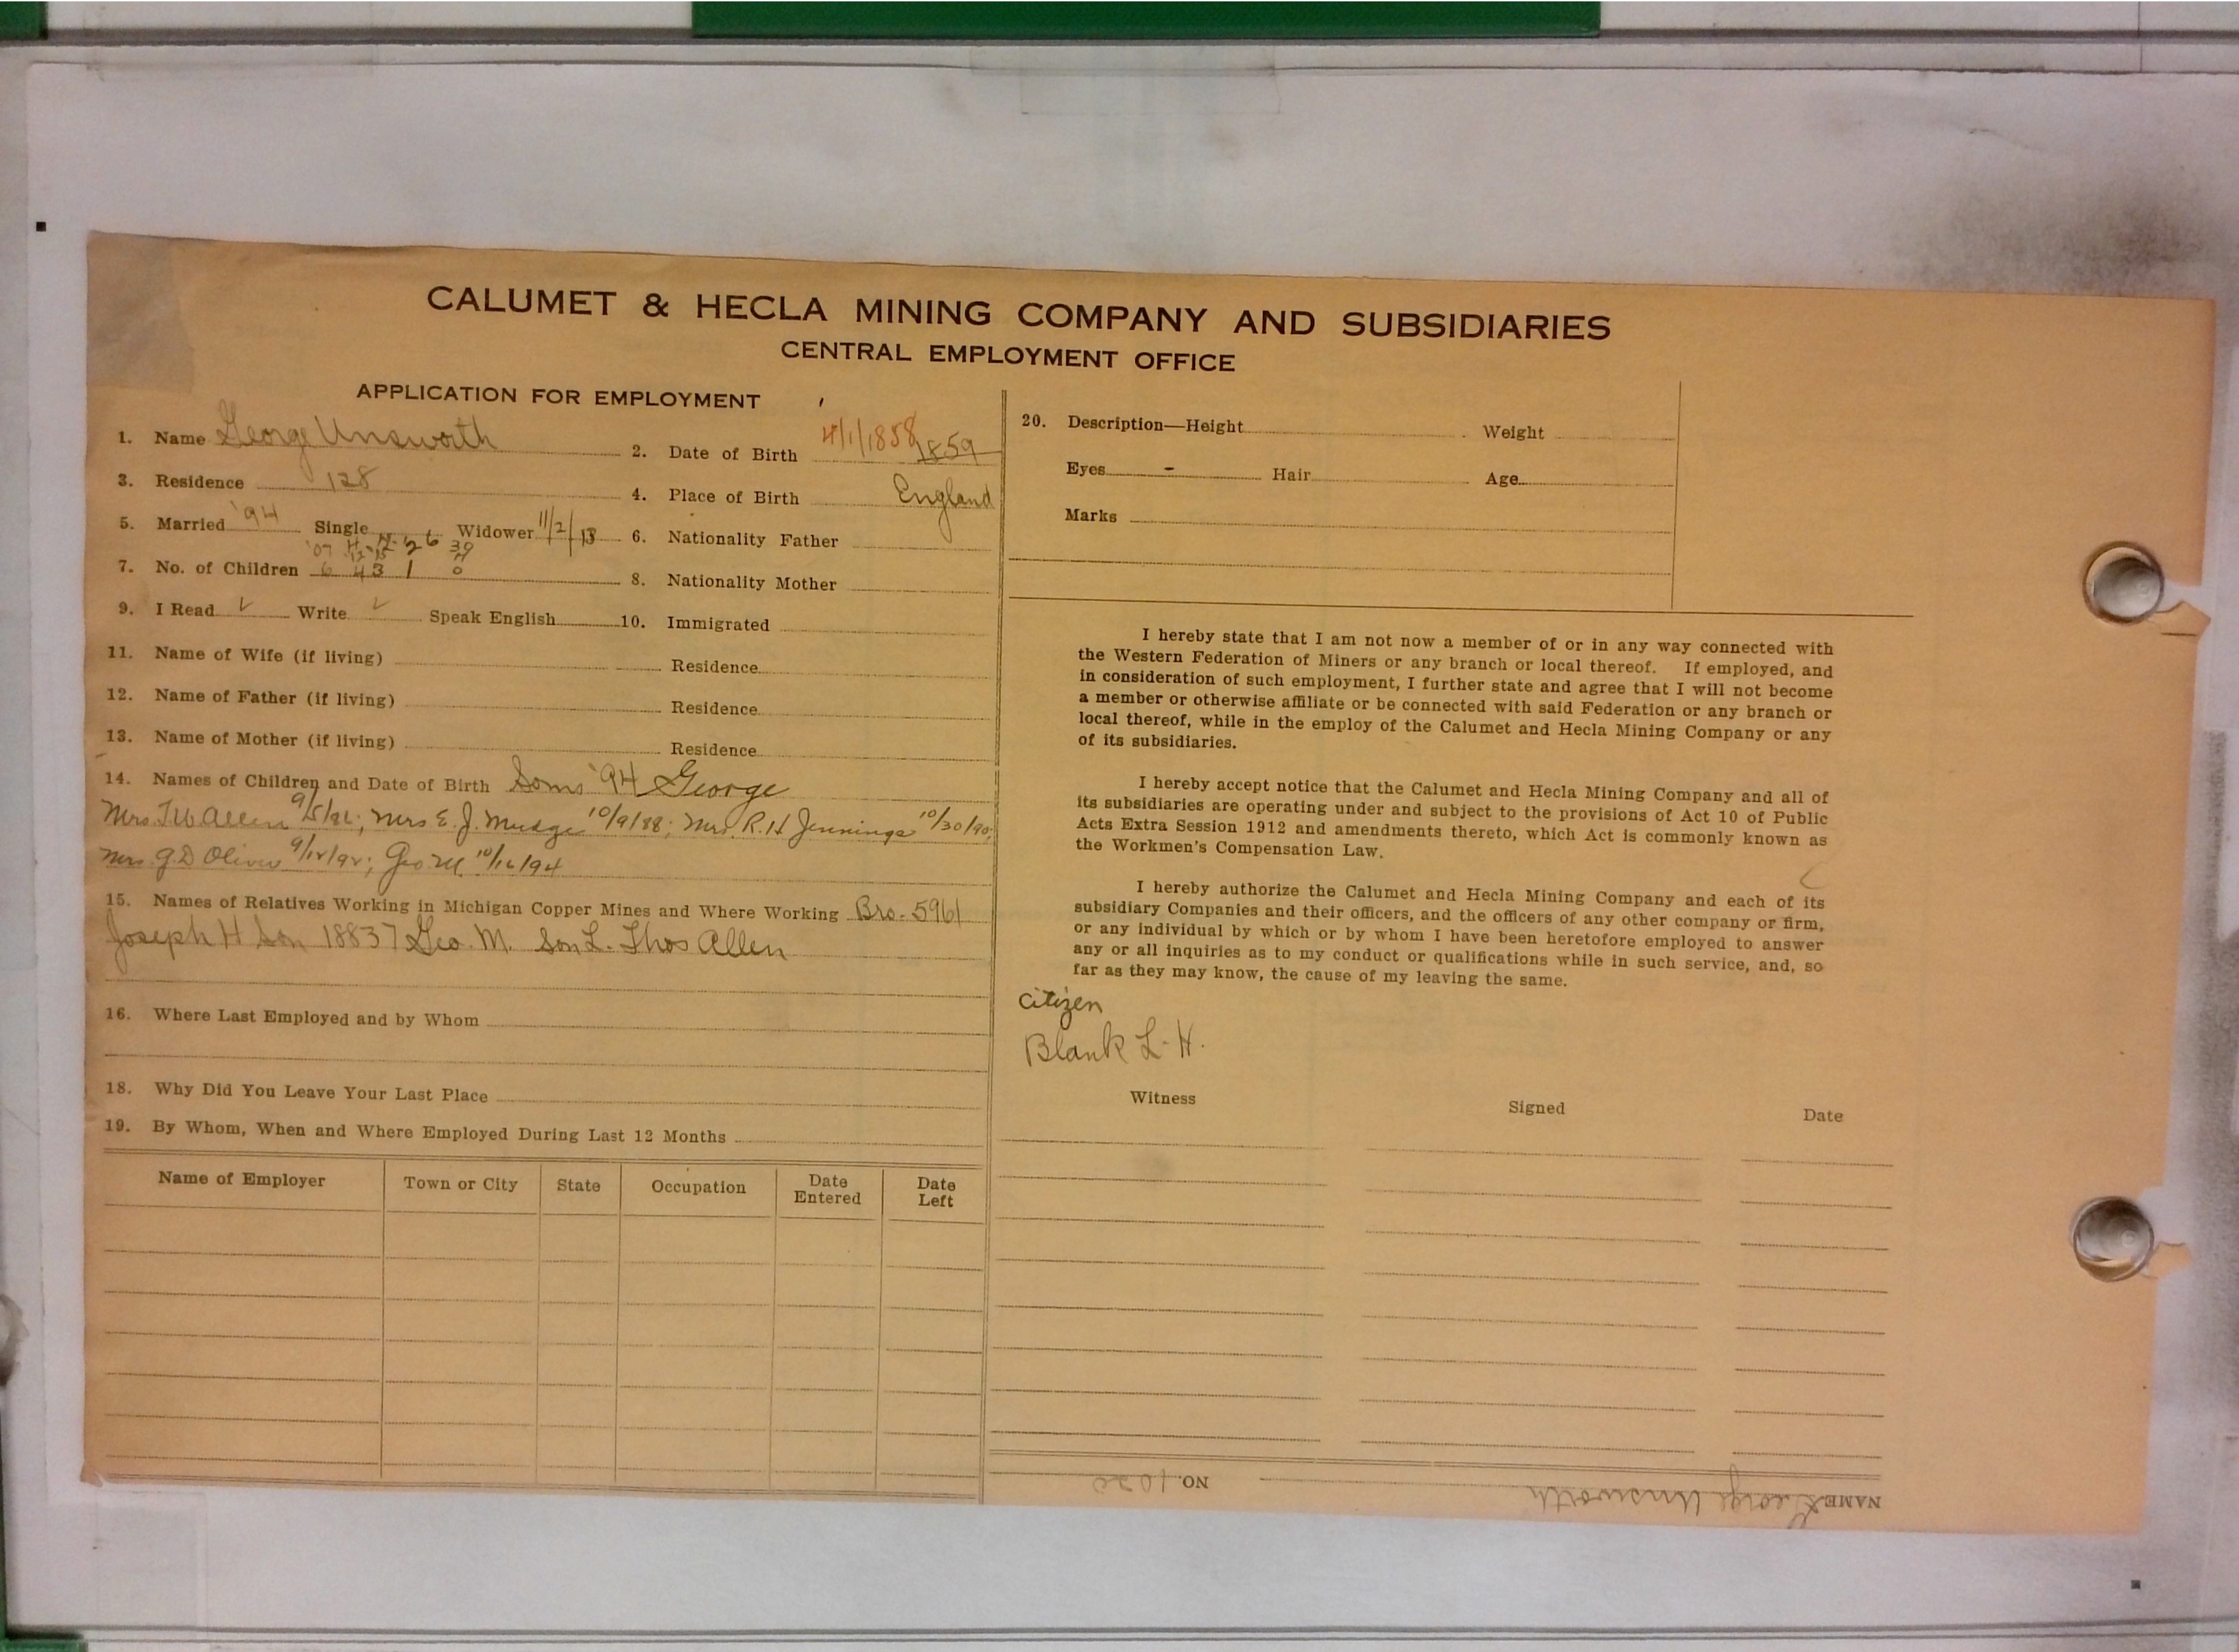 CALUMET & HECLA MINING COMPANY AND SUBSIDIARIES
CENTRAL EMPLOYMENT OFFICE
APPLICATION FOR EMPLOYMENT
1. Name George Unsworth 2. Date of Birth 4/1/1858 1859
3. Residence 128 4. Place of Birth England
5. Married '94 Single Widower 11/2/13 6. Nationality Father
'07 26 39
7. No. of Children 6 4 3 1 0 8. Nationality Mother
9. I Read ✓ Write ✓ Speak English 10. Immigrated
11. Name of Wife (if living) Residence
12. Name of Father (if living) Residence
13. Name of Mother (if living) Residence
14. Names of Children and Date of Birth Sons '94 George
Mrs. T W Allen Mrs E. J. Mudge 10/9/88; Mrs. R. H Jennings 10/30/90;
Mrs. G D Oliver Geo M. 10/16/94
15. Names of Relatives Working in Michigan Copper Mines and Where Working Bro. 5961
Joseph H Son 18837 Geo. M. Son L. Thos Allen
16. Where Last Employed and by Whom
18. Why Did You Leave Your Last Place
19. By Whom, When and Where Employed During Last 12 Months
Name of Employer Town or City State Occupation Date Entered Date Left
20. Description—Height Weight
Eyes - Hair Age
Marks
I hereby state that I am not now a member of or in any way connected with
the Western Federation of Miners or any branch or local thereof. If employed, and
in consideration of such employment, I further state and agree that I will not become
a member or otherwise affiliate or be connected with said Federation or any branch or
local thereof, while in the employ of the Calumet and Hecla Mining Company or any
of its subsidiaries.
I hereby accept notice that the Calumet and Hecla Mining Company and all of
its subsidiaries are operating under and subject to the provisions of Act 10 of Public
Acts Extra Session 1912 and amendments thereto, which Act is commonly known as
the Workmen's Compensation Law.
I hereby authorize the Calumet and Hecla Mining Company and each of its
subsidiary Companies and their officers, and the officers of any other company or firm,
or any individual by which or by whom I have been heretofore employed to answer
any or all inquiries as to my conduct or qualifications while in such service, and, so
far as they may know, the cause of my leaving the same.
Citizen
Blank L. H.
Witness Signed Date
NAME George Unsworth NO. 1020